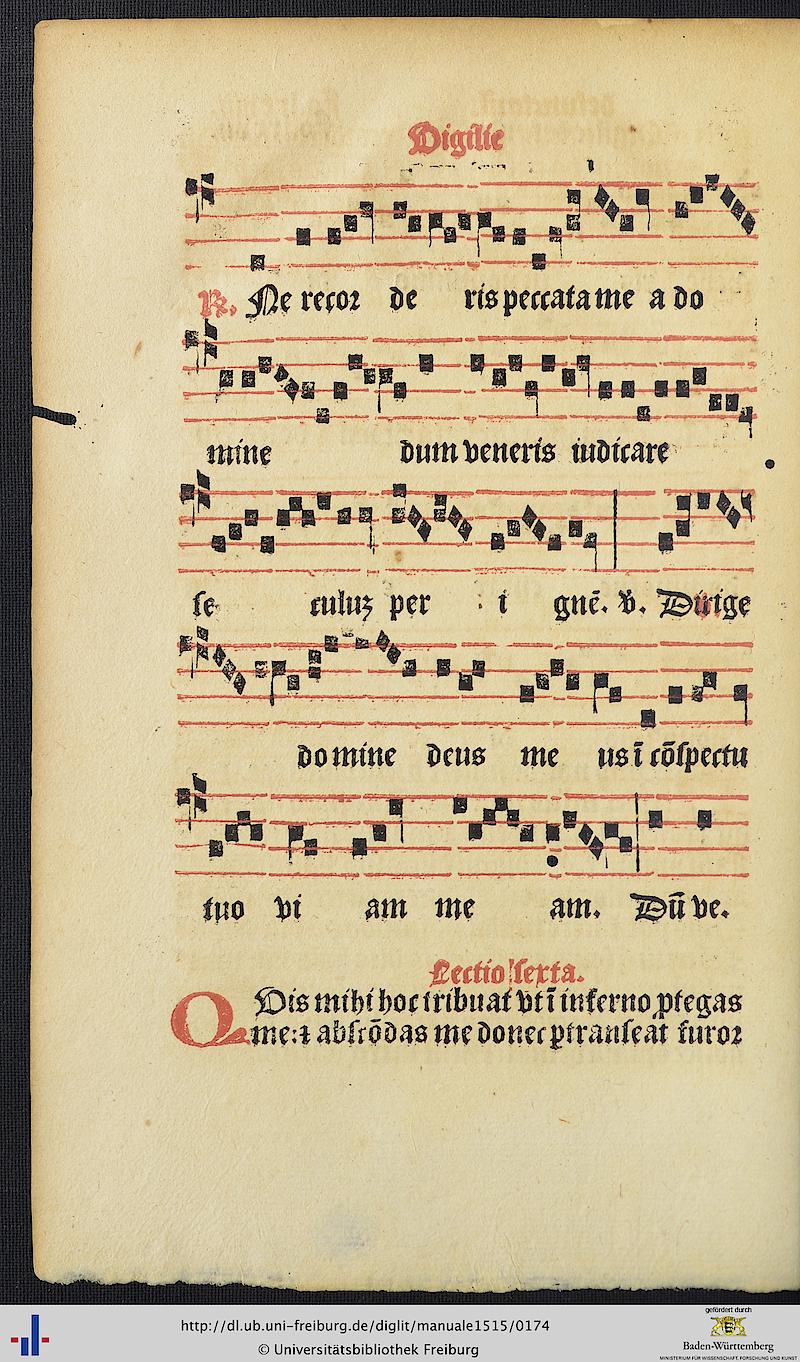 Vigilie
R. Ne recor de ris peccata me a do
mine dum veneris iudicare
se culuʒ per i gnē. v. Dirige
do mine deus me us ī cōspectu
tuo vi am me am. Dū ve.
Lectio sexta.
QVis mihi hoc tribuat vt ī inferno ꝓtegas
me: ⁊ abscōdas me donec ꝑtranseat furor
gefördert durch
http://dl.ub.uni-freiburg.de/diglit/manuale1515/0174
© Universitätsbibliothek Freiburg
Baden-Württemberg
MINISTERIUM FÜR WISSENSCHAFT, FORSCHUNG UND KUNST